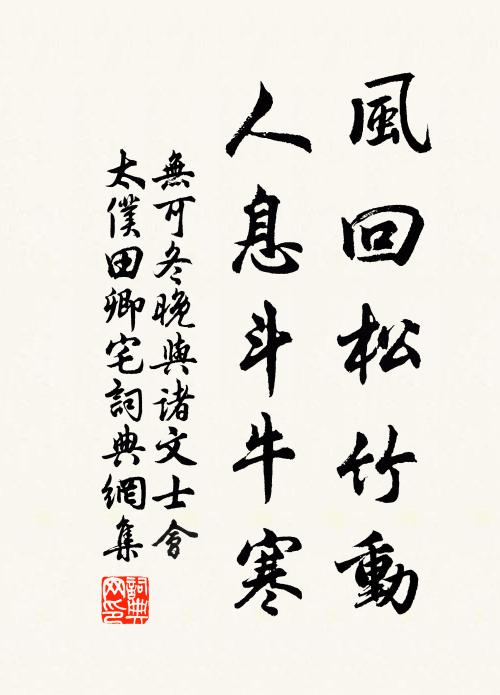 風回松竹動
人息斗牛寒
無可冬晚與諸文士會
太僕田卿宅詞典網集
詞典
网印